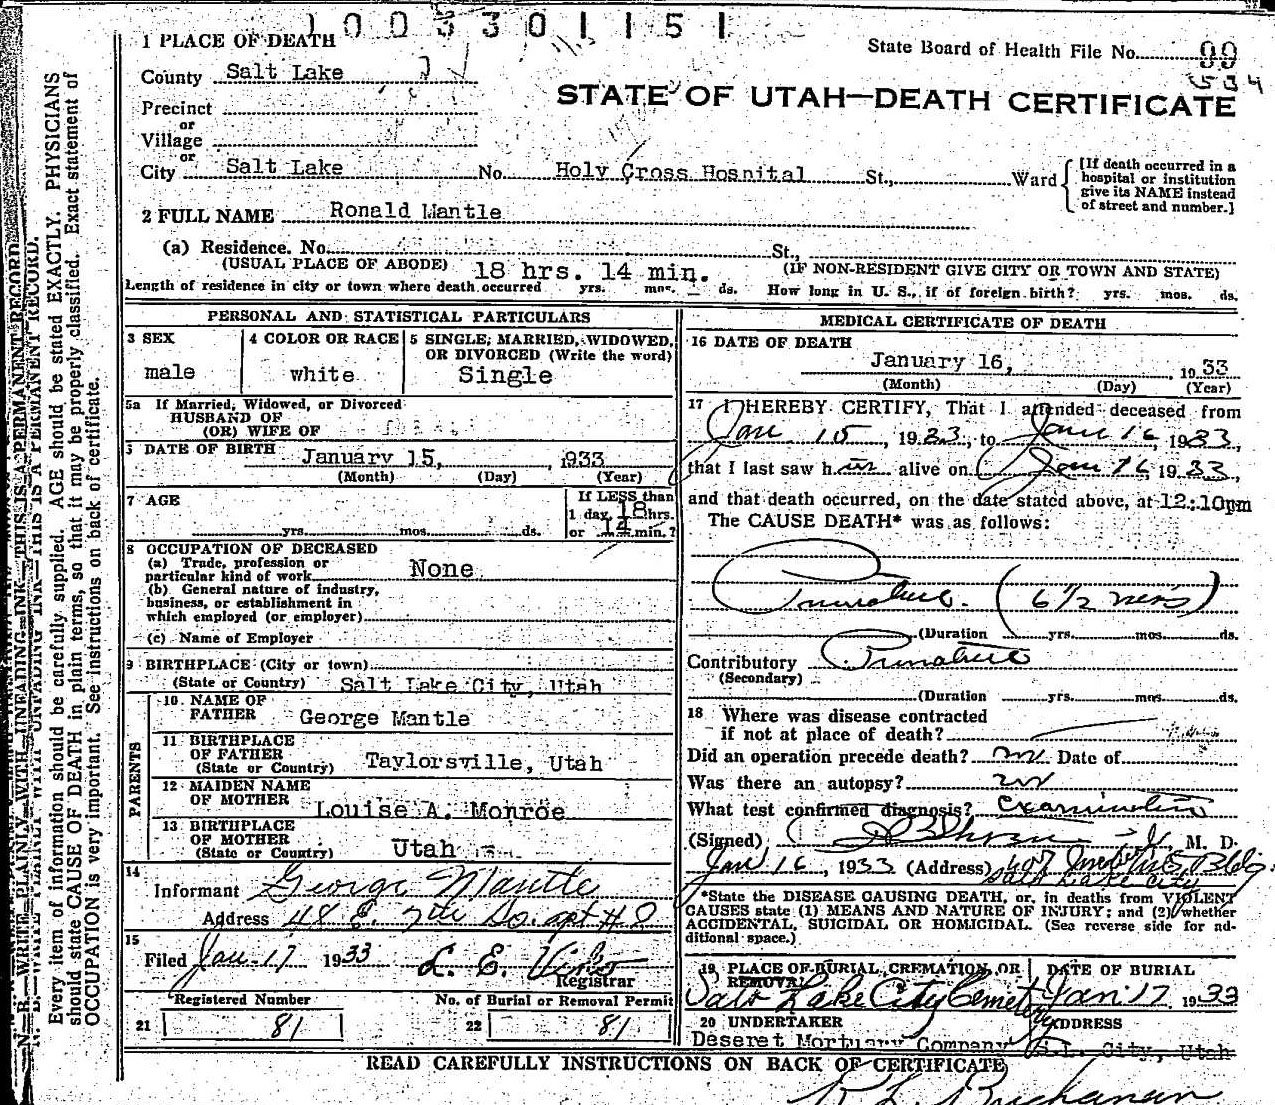 1 0 0 3 3 0 1 1 5 1
State Board of Health File No. 99
STATE OF UTAH—DEATH CERTIFICATE
1 PLACE OF DEATH
County Salt Lake
Precinct
or
Village
or
City Salt Lake No. Holy Cross Hospital St., Ward
[If death occurred in a
hospital or institution
give its NAME instead
of street and number.]
2 FULL NAME Ronald Mantle
(a) Residence. No. St.,
(USUAL PLACE OF ABODE) 18 hrs. 14 min. (IF NON-RESIDENT GIVE CITY OR TOWN AND STATE)
Length of residence in city or town where death occurred yrs. mos. ds. How long in U. S., if of foreign birth? yrs. mos. ds.
PERSONAL AND STATISTICAL PARTICULARS
3 SEX
male
4 COLOR OR RACE
white
5 SINGLE, MARRIED, WIDOWED,
OR DIVORCED (Write the word)
Single
5a If Married, Widowed, or Divorced
HUSBAND OF
(OR) WIFE OF
DATE OF BIRTH January 15, 1933
(Month) (Day) (Year)
7 AGE
yrs. mos. ds.
If LESS than
1 day, 18 hrs.
or 14 min.?
8 OCCUPATION OF DECEASED
(a) Trade, profession or
particular kind of work None
(b) General nature of industry,
business, or establishment in
which employed (or employer)
(c) Name of Employer
9 BIRTHPLACE (City or town)
(State or Country) Salt Lake City, Utah
PARENTS
10 NAME OF
FATHER George Mantle
11 BIRTHPLACE
OF FATHER
(State or Country) Taylorsville, Utah
12 MAIDEN NAME
OF MOTHER Louise A. Monroe
13 BIRTHPLACE
OF MOTHER
(State or Country) Utah
14
Informant George Mantle
Address 48 E. 7th So. apt #2
15
Filed Jan. 17 1933 L. E. Viko
Registrar
Registered Number
21 81
No. of Burial or Removal Permit
22 81
MEDICAL CERTIFICATE OF DEATH
16 DATE OF DEATH
January 16, 1933
(Month) (Day) (Year)
17 I HEREBY CERTIFY, That I attended deceased from
Jan. 15, 1933, to Jan 16 1933,
that I last saw him alive on Jan 16, 1933,
and that death occurred, on the date stated above, at 12:10pm
The CAUSE DEATH* was as follows:
Premature. (6 1/2 mos)
(Duration yrs. mos. ds.
Contributory Premature
(Secondary)
(Duration yrs. mos. ds.
18 Where was disease contracted
if not at place of death?
Did an operation precede death? no. Date of
Was there an autopsy? no
What test confirmed diagnosis? examination
(Signed) M. D.
Jan 16, 1933 (Address) Bldg.
Salt Lake City
*State the DISEASE CAUSING DEATH, or, in deaths from VIOLENT
CAUSES state (1) MEANS AND NATURE OF INJURY; and (2) whether
ACCIDENTAL, SUICIDAL OR HOMICIDAL. (See reverse side for ad-
ditional space.)
19 PLACE OF BURIAL, CREMATION, OR
REMOVAL
Salt Lake City Cemetery
DATE OF BURIAL
Jan 17 1933
20 UNDERTAKER
Deseret Mortuary Company
ADDRESS
S.L. City, Utah
READ CAREFULLY INSTRUCTIONS ON BACK OF CERTIFICATE
R L Buchanan
N. B.—WRITE PLAINLY WITH UNFADING INK—THIS IS A PERMANENT RECORD.
Every item of information should be carefully supplied. AGE should be stated EXACTLY. PHYSICIANS
should state CAUSE OF DEATH in plain terms, so that it may be properly classified. Exact statement of
OCCUPATION is very important. See instructions on back of certificate.